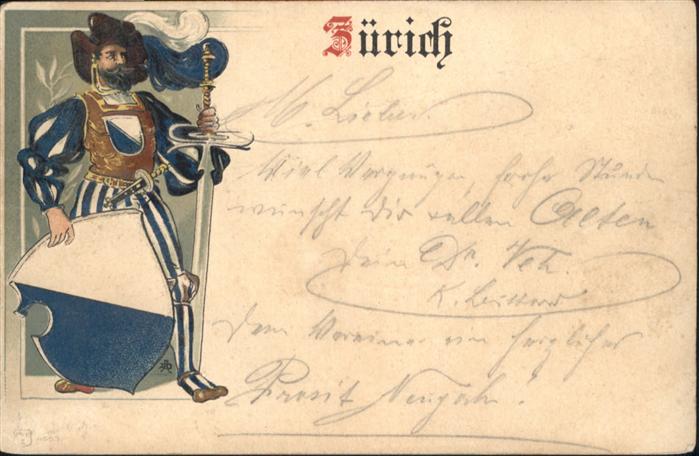 Zürich
M. Lieber.
Viel Vergnügen, frohe Stunden
wünscht Dir u allen Alten
Dein
Dem Vereine ein herzliches
Prosit Neujahr!